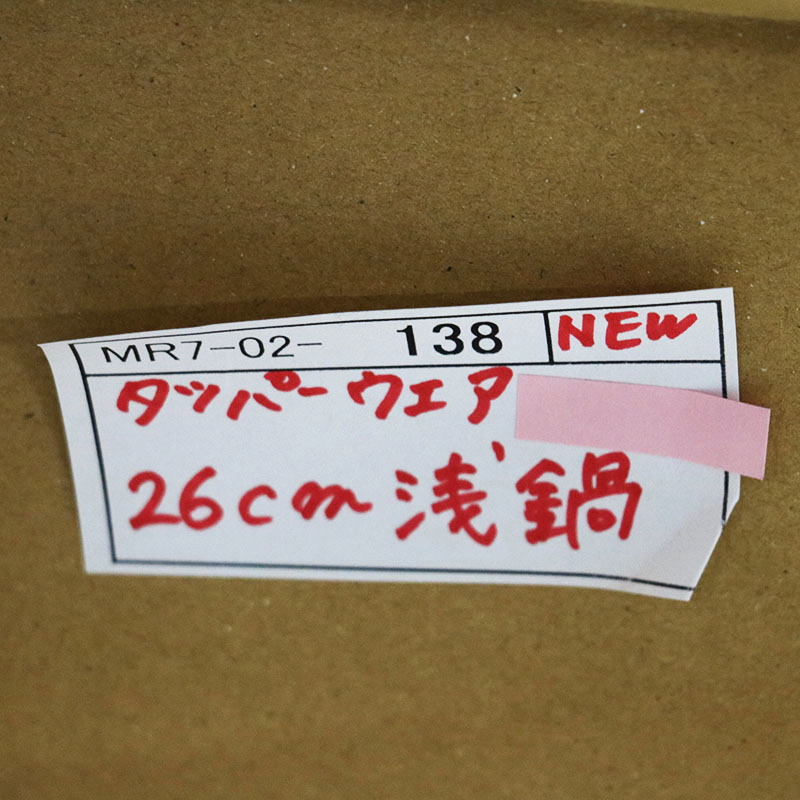 MR7-02- 138 NEW
タッパーウェア
26cm 浅鍋